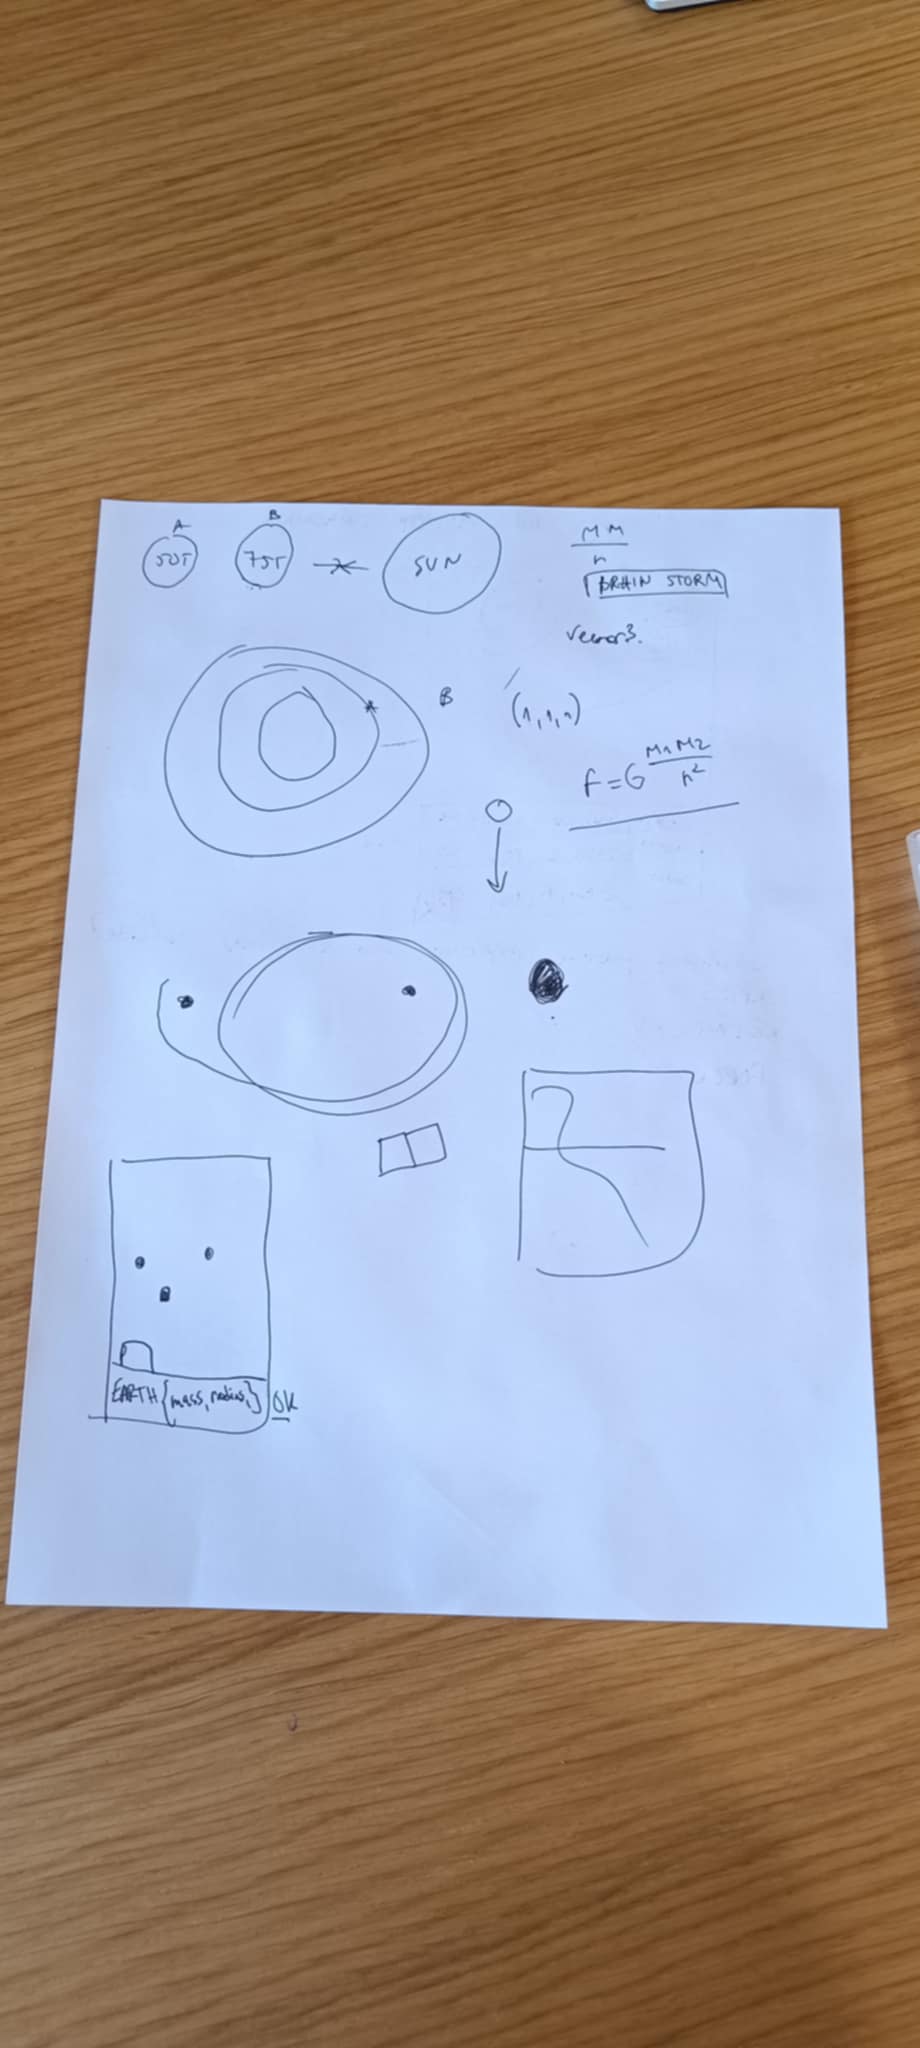 A
B
50T
75T
SUN
M M
r
BRAIN STORM
vector3.
B
(1,1,1)
F=G M1 M2
r²
EARTH {mass, radius,} OK